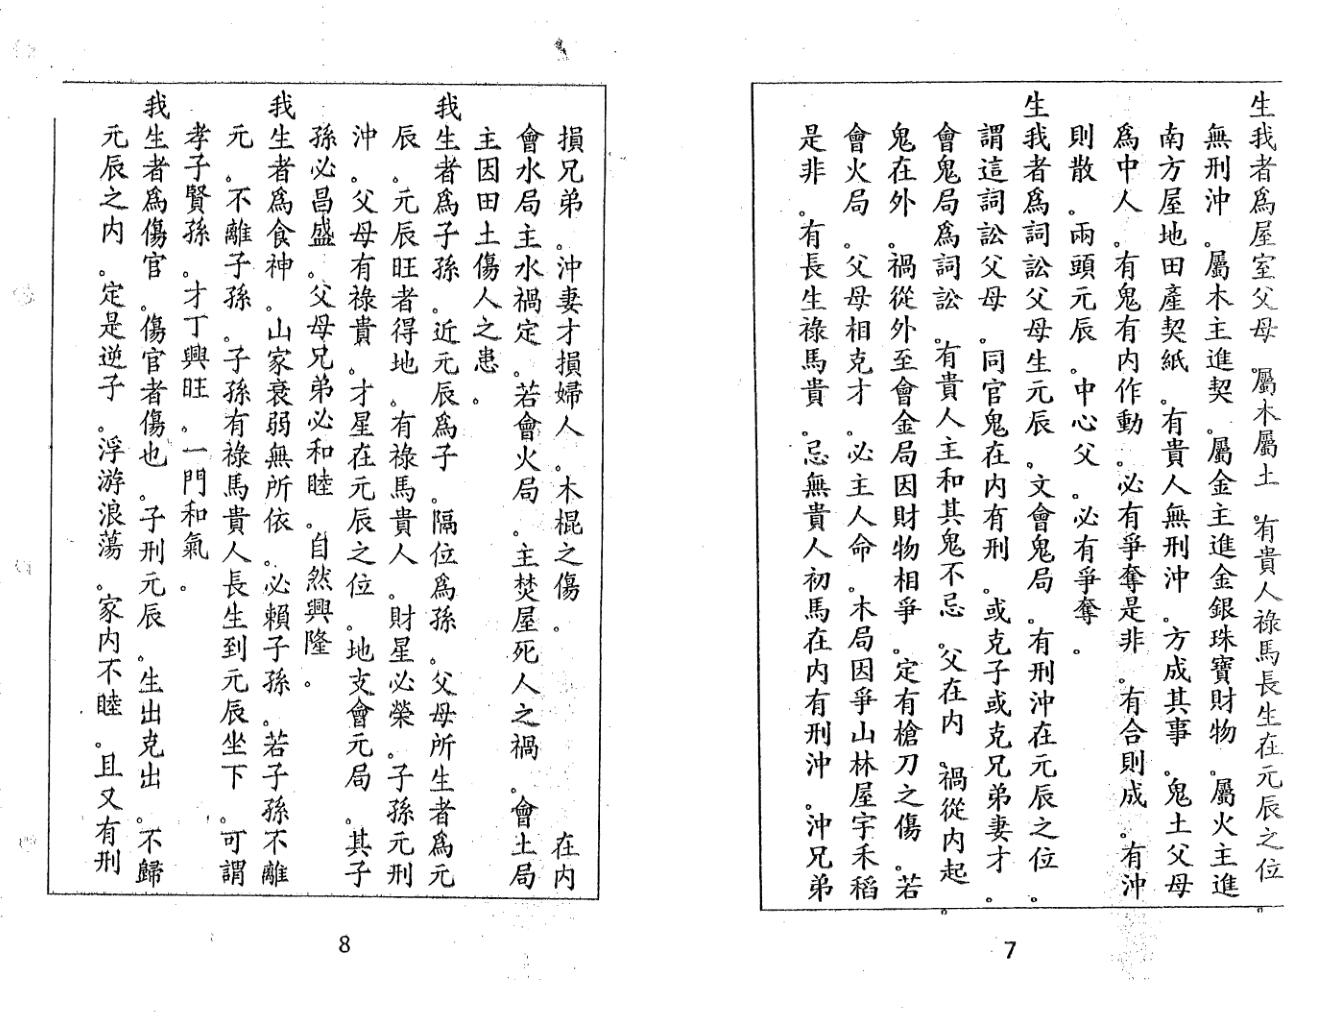 生我者爲屋室父母。屬木屬土。有貴人祿馬長生在元辰之位。
無刑沖。屬木主進契。屬金主進金銀珠寶財物。屬火主進
南方屋地田產契紙。有貴人無刑沖。方成其事。鬼土父母
爲中人。有鬼有內作動。必有爭奪是非。有合則成。有沖
則散。兩頭元辰。中心父。必有爭奪。
生我者爲詞訟父母生元辰。文會鬼局。有刑沖在元辰之位。
謂這詞訟父母。同官鬼在內有刑。或克子或克兄弟妻才。
會鬼局爲詞訟。有貴人主和其鬼不忌。父在內。禍從內起。
鬼在外。禍從外至會金局因財物相爭。定有槍刀之傷。若
會火局。父母相克才。必主人命。木局因爭山林屋宇禾稻
是非。有長生祿馬貴。忌無貴人初馬在內有刑沖。沖兄弟
7
損兄弟。沖妻才損婦人。木棍之傷。在內
會水局主水禍定。若會火局。主焚屋死人之禍。會土局
主因田土傷人之患。
我生者爲子孫。近元辰爲子。隔位爲孫。父母所生者爲元
辰。元辰旺者得地。有祿馬貴人。財星必榮。子孫元刑
沖。父母有祿貴。才星在元辰之位。地支會元局。其子
孫必昌盛。父母兄弟必和睦。自然興隆。
我生者爲食神。山家衰弱無所依。必賴子孫。若子孫不離
元。不離子孫。子孫有祿馬貴人長生到元辰坐下。可謂
孝子賢孫。才丁興旺。一門和氣。
我生者爲傷官。傷官者傷也。子刑元辰。生出克出。不歸
元辰之內。定是逆子。浮游浪蕩。家內不睦。且又有刑
8